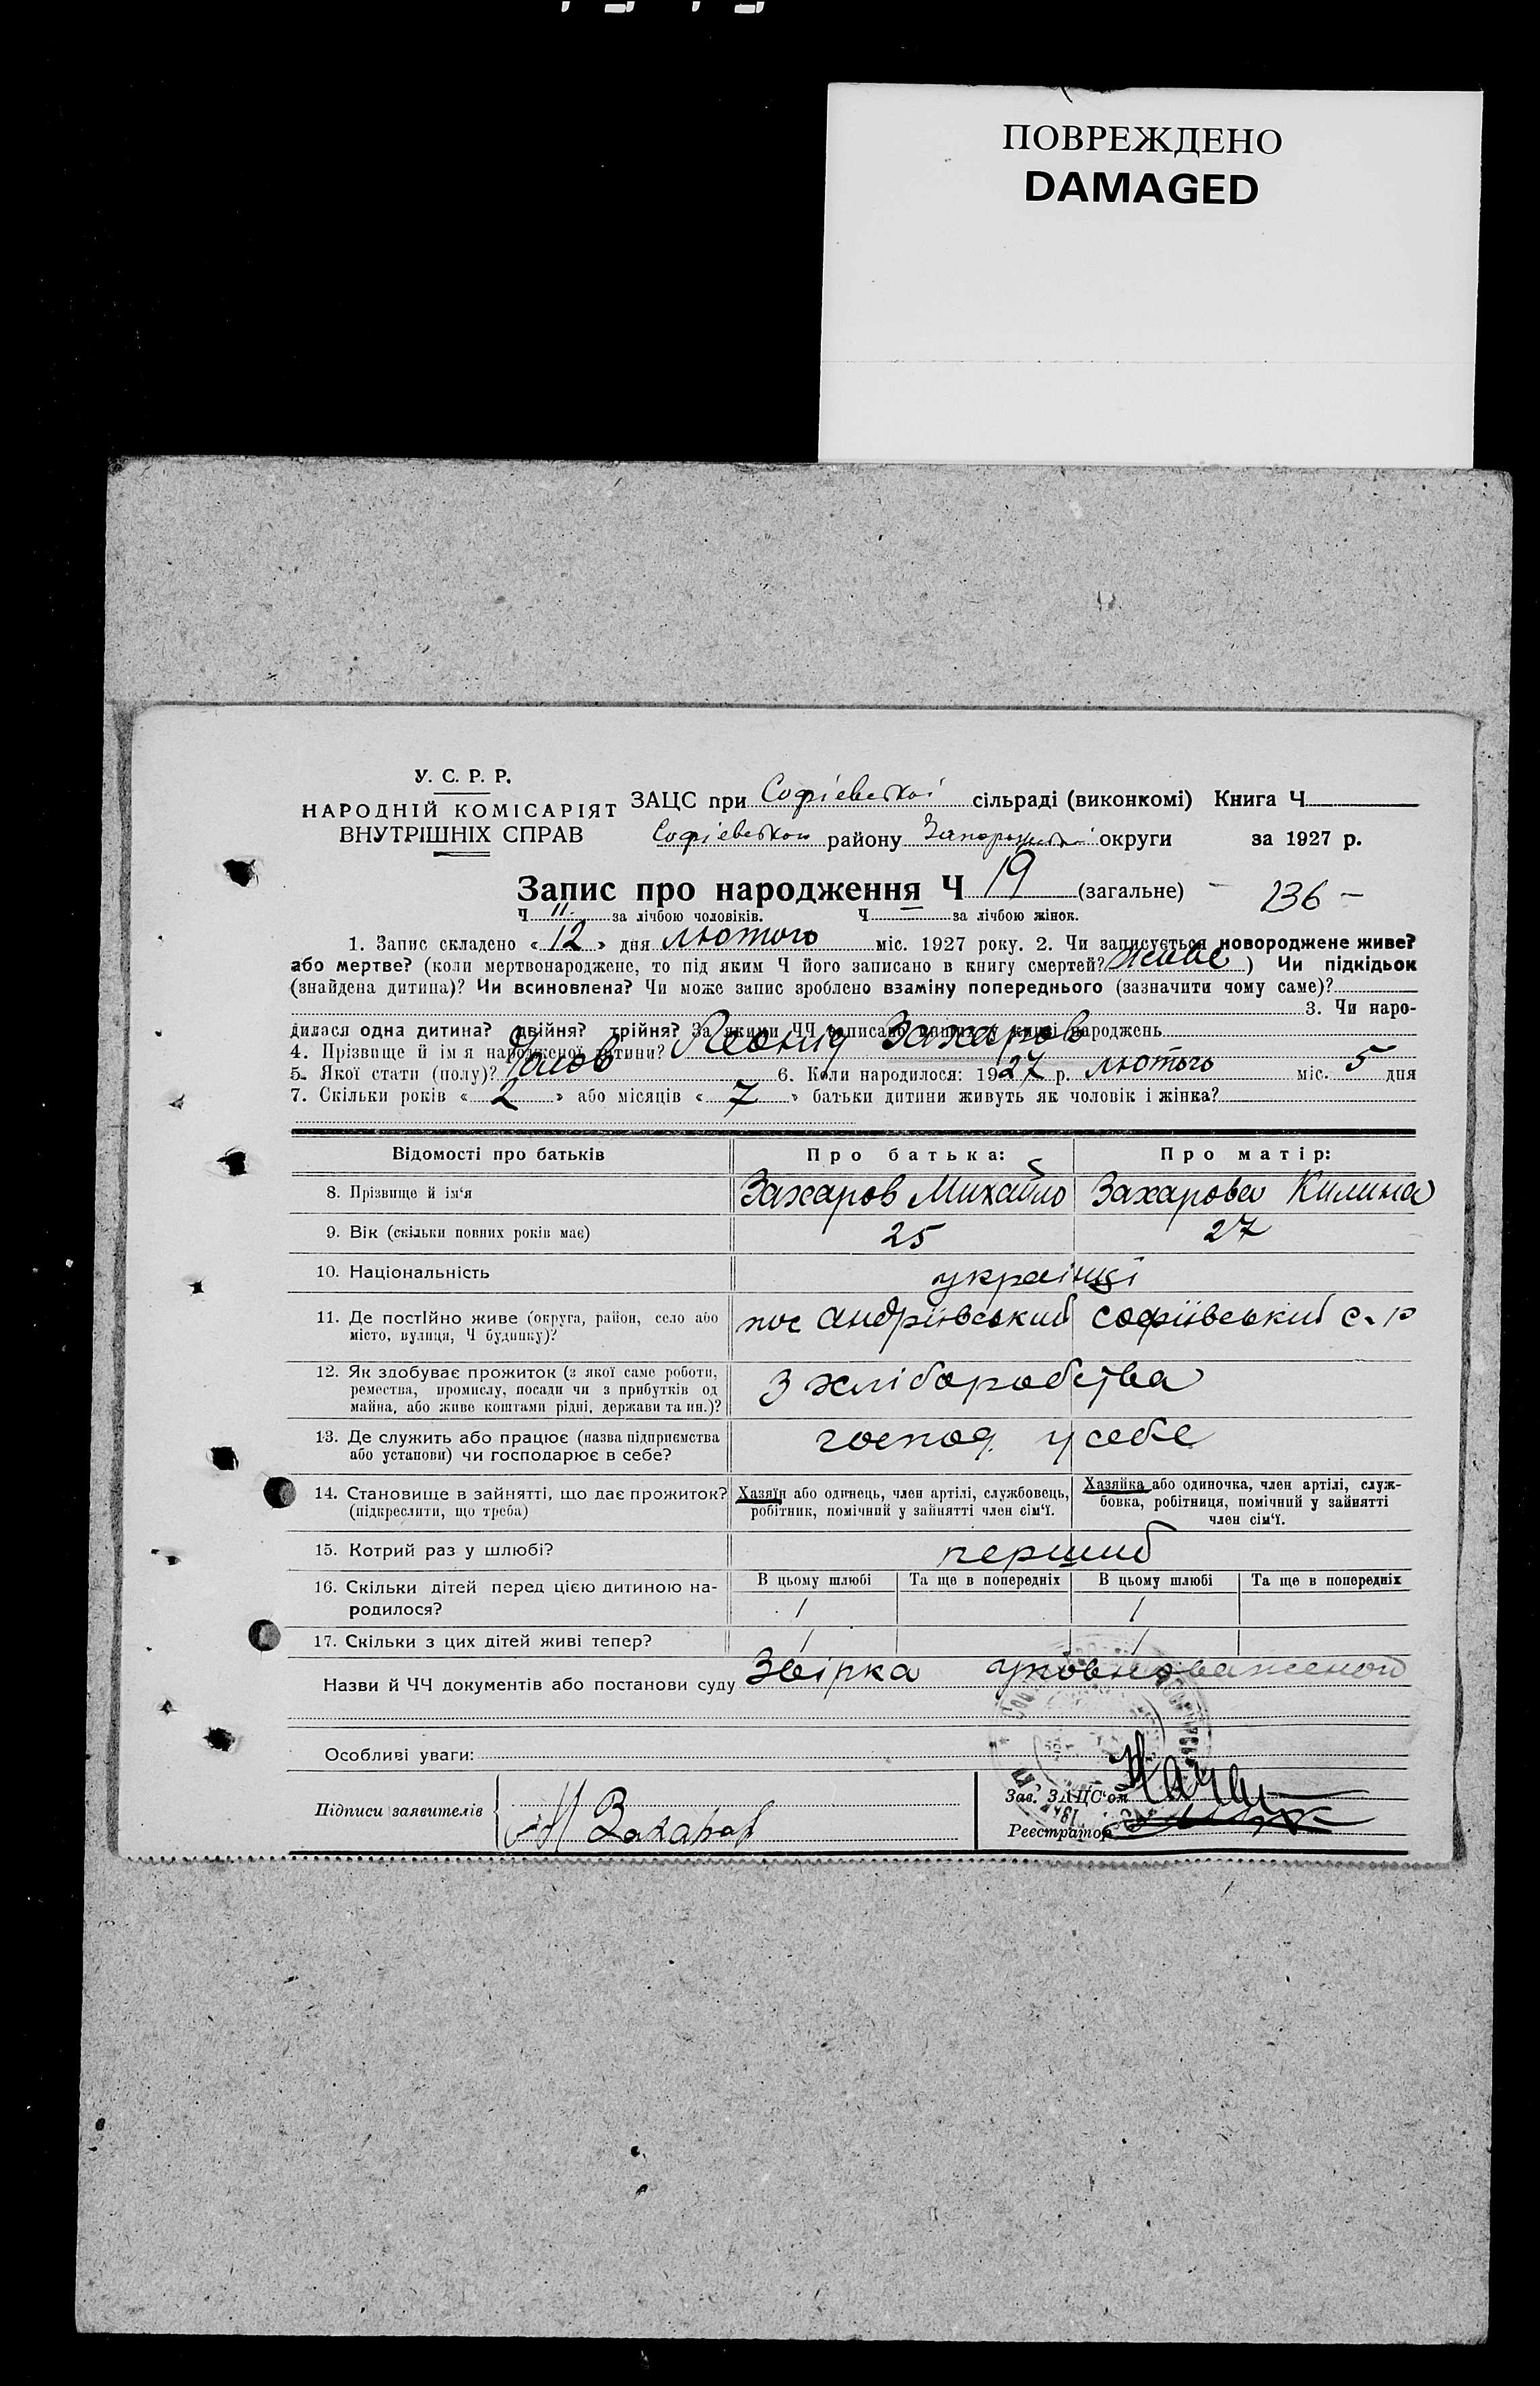 ПОВРЕЖДЕНО
DAMAGED
У. С. Р. Р.
НАРОДНІЙ КОМІСАРІЯТ
ВНУТРІШНІХ СПРАВ
ЗАЦС при Софіевської сільраді (виконкомі) Книга Ч
Софіевського району Запорізької округи за 1927 р.
Запис про народження Ч 19 (загальне) - 236 -
Ч 11 за лічбою чоловіків. Ч — за лічбою жінок.
1. Запис складено « 12 » дня лютого міс. 1927 року. 2. Чи записується новороджене живе?
або мертве? (коли мертвонароджене, то під яким Ч його записано в книгу смертей? живе ) Чи підкідьок
(знайдена дитина)? Чи всиновлена? Чи може запис зроблено взаміну попереднього (зазначити чому саме)?
3. Чи наро-
дилася одна дитина? двійня? трійня? За якими ЧЧ записано інших у книзі народжень
4. Прізвище й ім я народженої дитини? Леонид Захаров
5. Якої стати (полу)? 6. Коли народилося: 1927 р. лютого міс. 5 дня
7. Скільки років « 2 » або місяців « 7 » батьки дитини живуть як чоловік і жінка?
Відомості про батьків Про батька: Про матір:
8. Прізвище й ім'я Захаров Михайло Захарова Килина
9. Вік (скільки повних років має) 25 27
10. Національність українці
11. Де постійно живе (округа, район, село або
місто, вулиця, Ч будинку)? пос Андріівський Софіівський с. р
12. Як здобуває прожиток (з якої саме роботи,
ремества, промислу, посади чи з прибутків од
майна, або живе коштами рідні, держави та ин.)? З хліборобства
13. Де служить або працює (назва підприємства
або установи) чи господарює в себе? господ. у себе
14. Становище в зайнятті, що дає прожиток?
(підкреслити, що треба)
Хазяїн або одинець, член артілі, службовець,
робітник, помічний у зайнятті член сім'ї.
Хазяйка або одиночка, член артілі, служ-
бовка, робітниця, помічний у зайнятті
член сім'ї.
15. Котрий раз у шлюбі? перший
16. Скільки дітей перед цією дитиною на-
родилося?
В цьому шлюбі Та ще в попередніх В цьому шлюбі Та ще в попередніх
1 1
17. Скільки з цих дітей живі тепер? 1 1
Назви й ЧЧ документів або постанови суду Звірка
Особливі уваги:
Підписи заявителів М Захаров
Зав. ЗАЦС'ом
Реєстратор